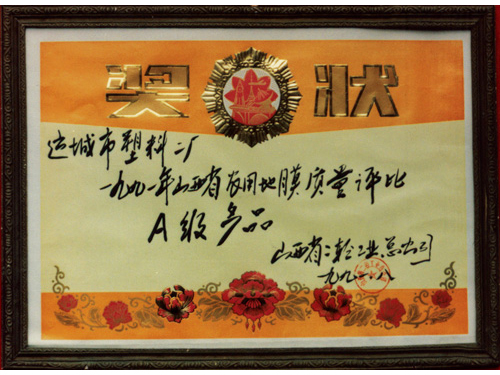 奖状
运城市塑料二厂
一九九一年山西省农用地膜质量评比
A级产品
山西省二轻工业总公司
一九九一.八